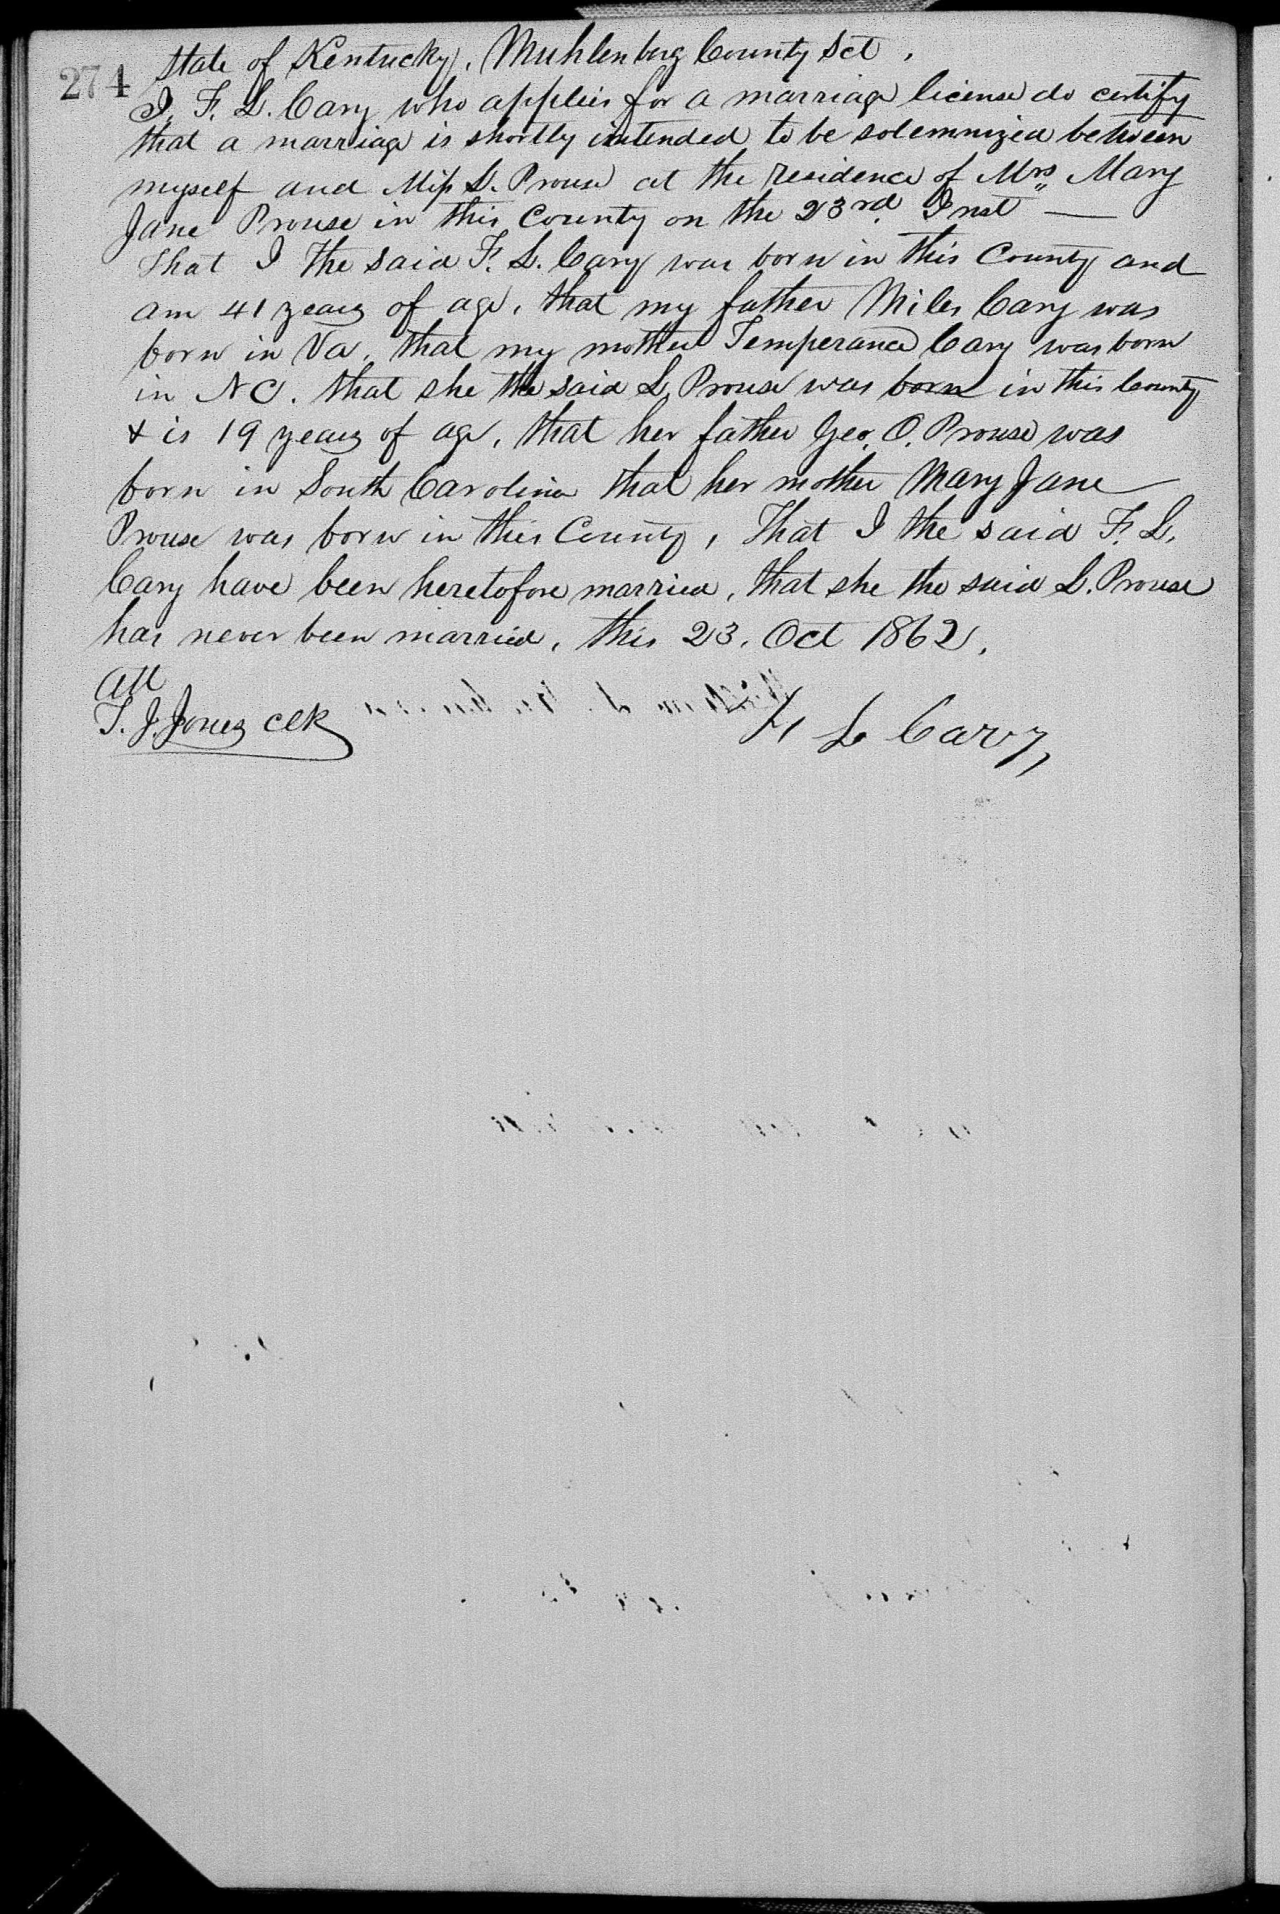 274
State of Kentucky, Muhlenberg County Sct.
I, F. L. Cary who applies for a marriage license do certify
that a marriage is shortly intended to be solemnized between
myself and Miss L. Prouse at the residence of Mrs Mary
Jane Prouse in this County on the 23rd Inst —
That I the said F. L. Cary was born in this County and
am 41 years of age, that my father Miles Cary was
born in Va, that my mother Temperance Cary was born
in NC. that she the said L. Prouse was born in this County
& is 19 years of age, that her father Geo. O. Prouse was
born in South Carolina that her mother Mary Jane
Prouse was born in this County, That I the said F. L.
Cary have been heretofore married, that she the said L. Prouse
has never been married, this 23. Oct 1862.
Att
T. J. Jones Clk
F L Cary